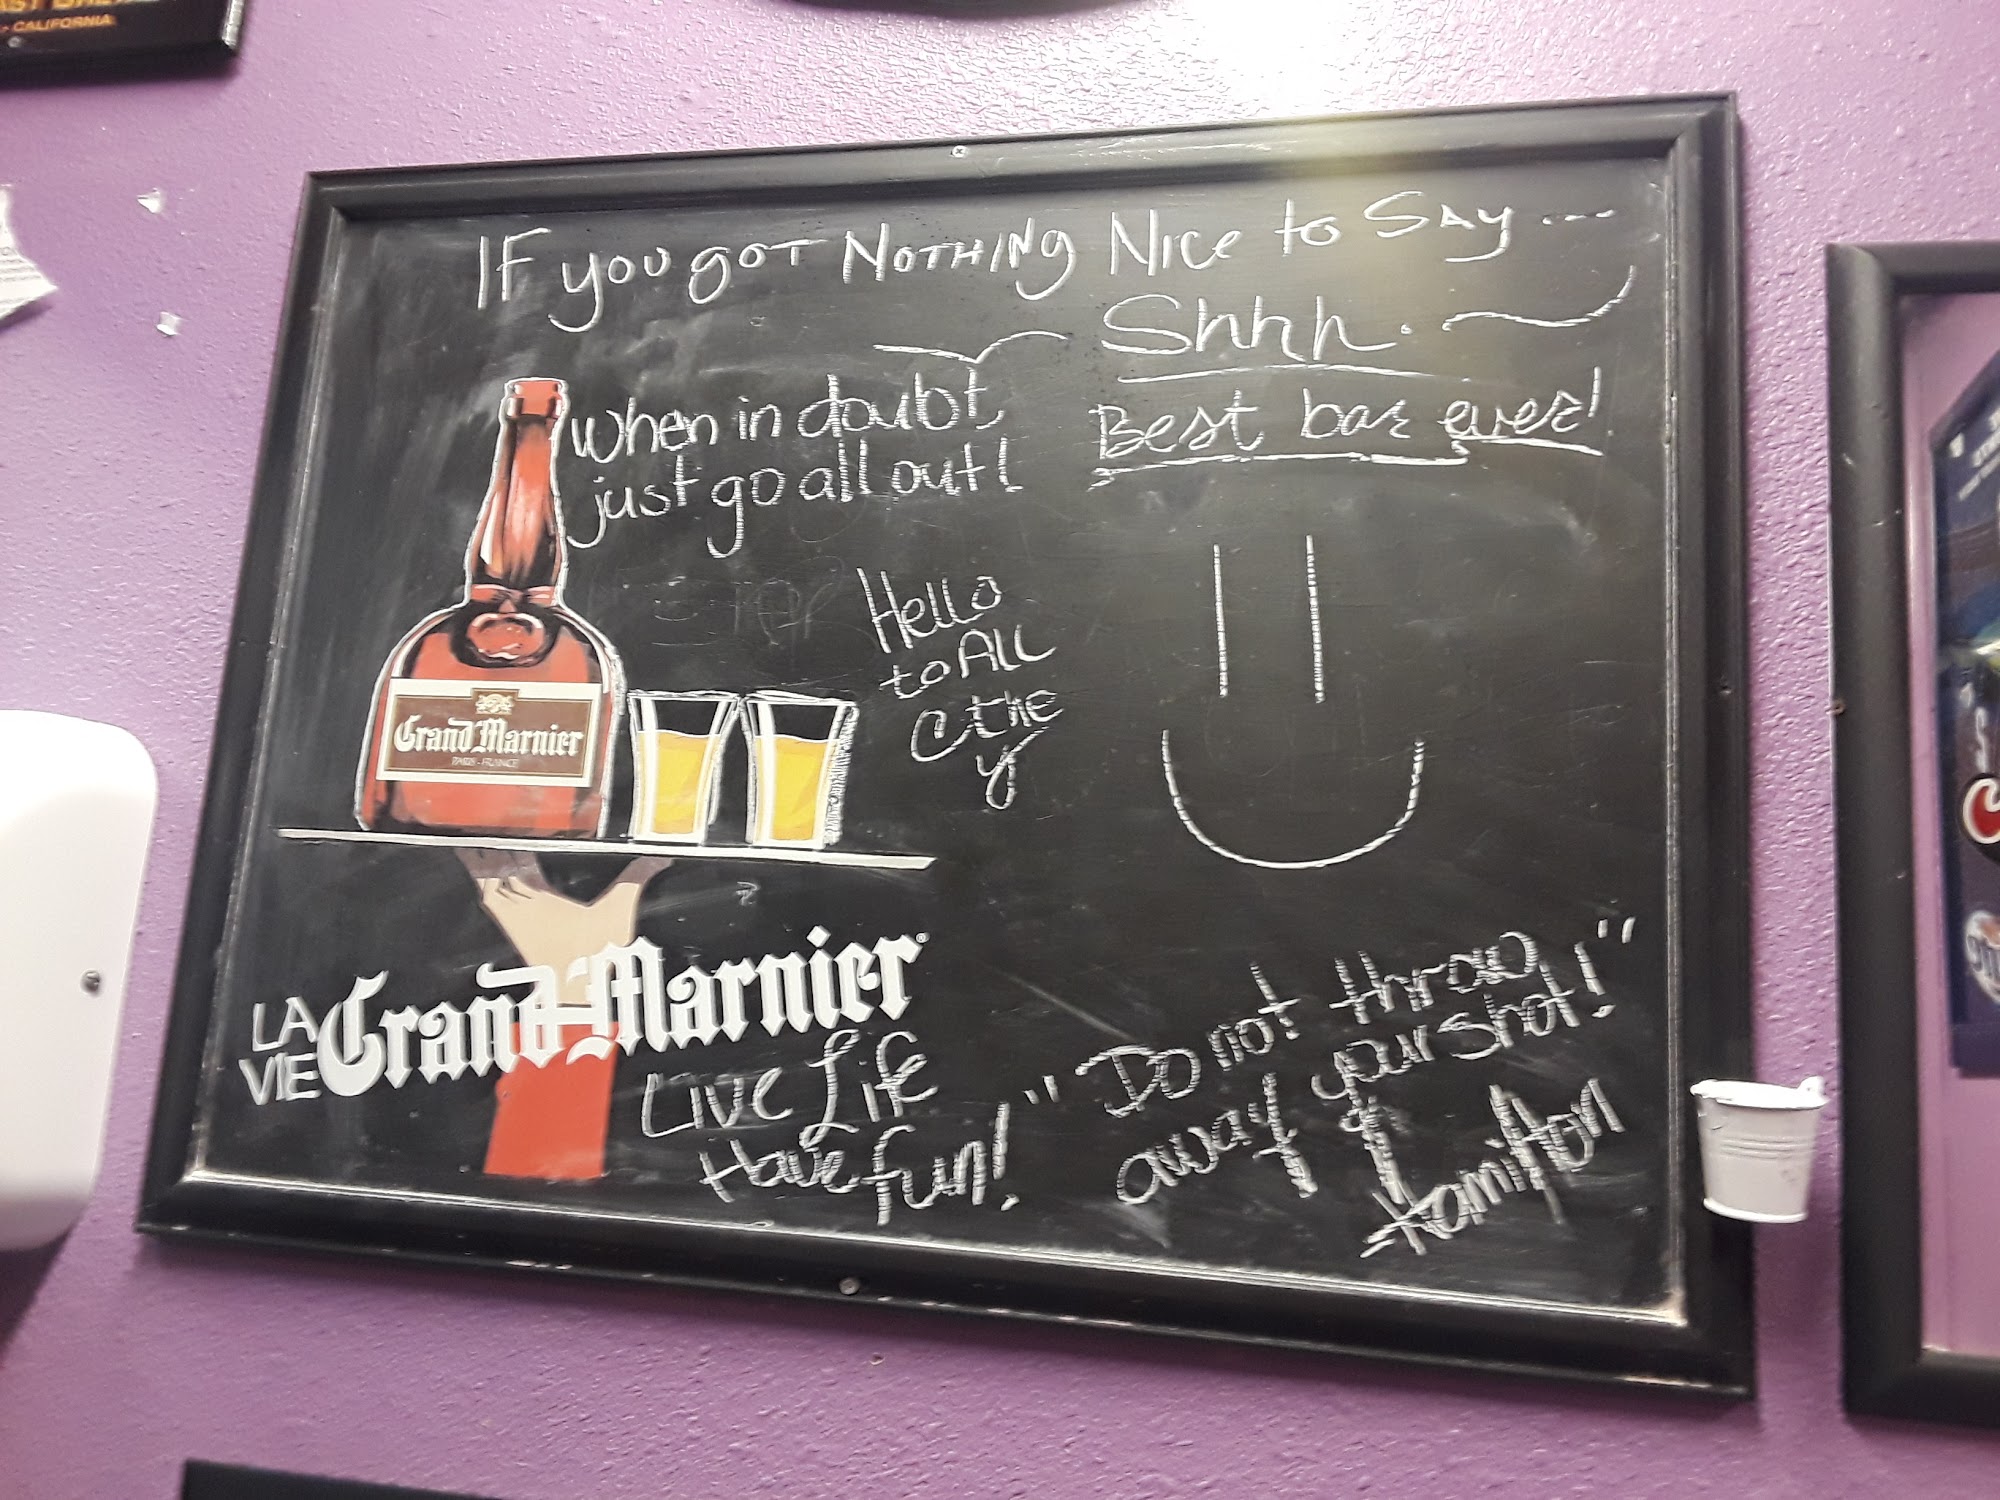 CALIFORNIA
IF you got Nothing Nice to Say...
Shhh.
When in doubt,
just go all out!
Best bar ever!
Hello
to All
C the
y
Grand Marnier
PARIS - FRANCE
LA
VIE
Grand Marnier
Live Life
Have fun!
"Do not throw
away your shot!"
Hamilton